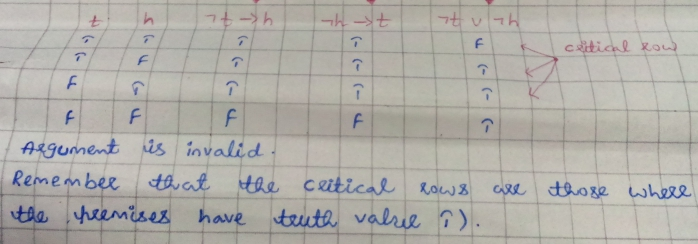 t h ¬t → h ¬h → t ¬t ∨ ¬h
T T T T F critical row
T F T T T
F T T T T
F F F F T
Argument is invalid.
Remember that the critical rows are those where
the premises have truth value T).